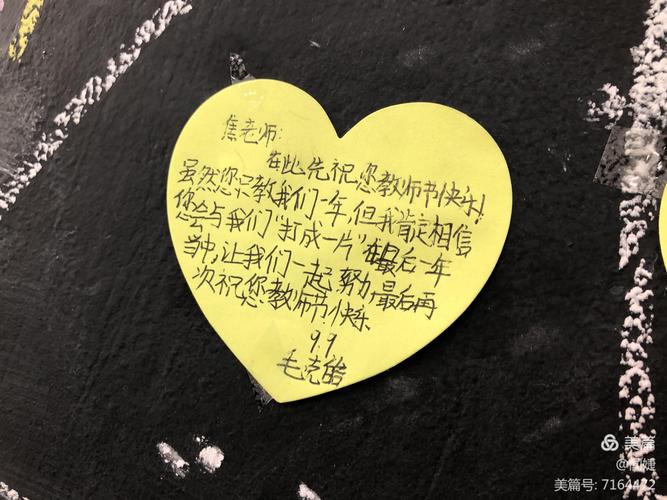 焦老师:
在此先祝您教师节快乐!
虽然您只教我们一年,但我肯定相信
您会与我们"打成一片"在最后一年
当中,让我们一起努力,最后再
次祝您教师节快乐
9.9
毛克皓
美篇
美篇号: 7164422